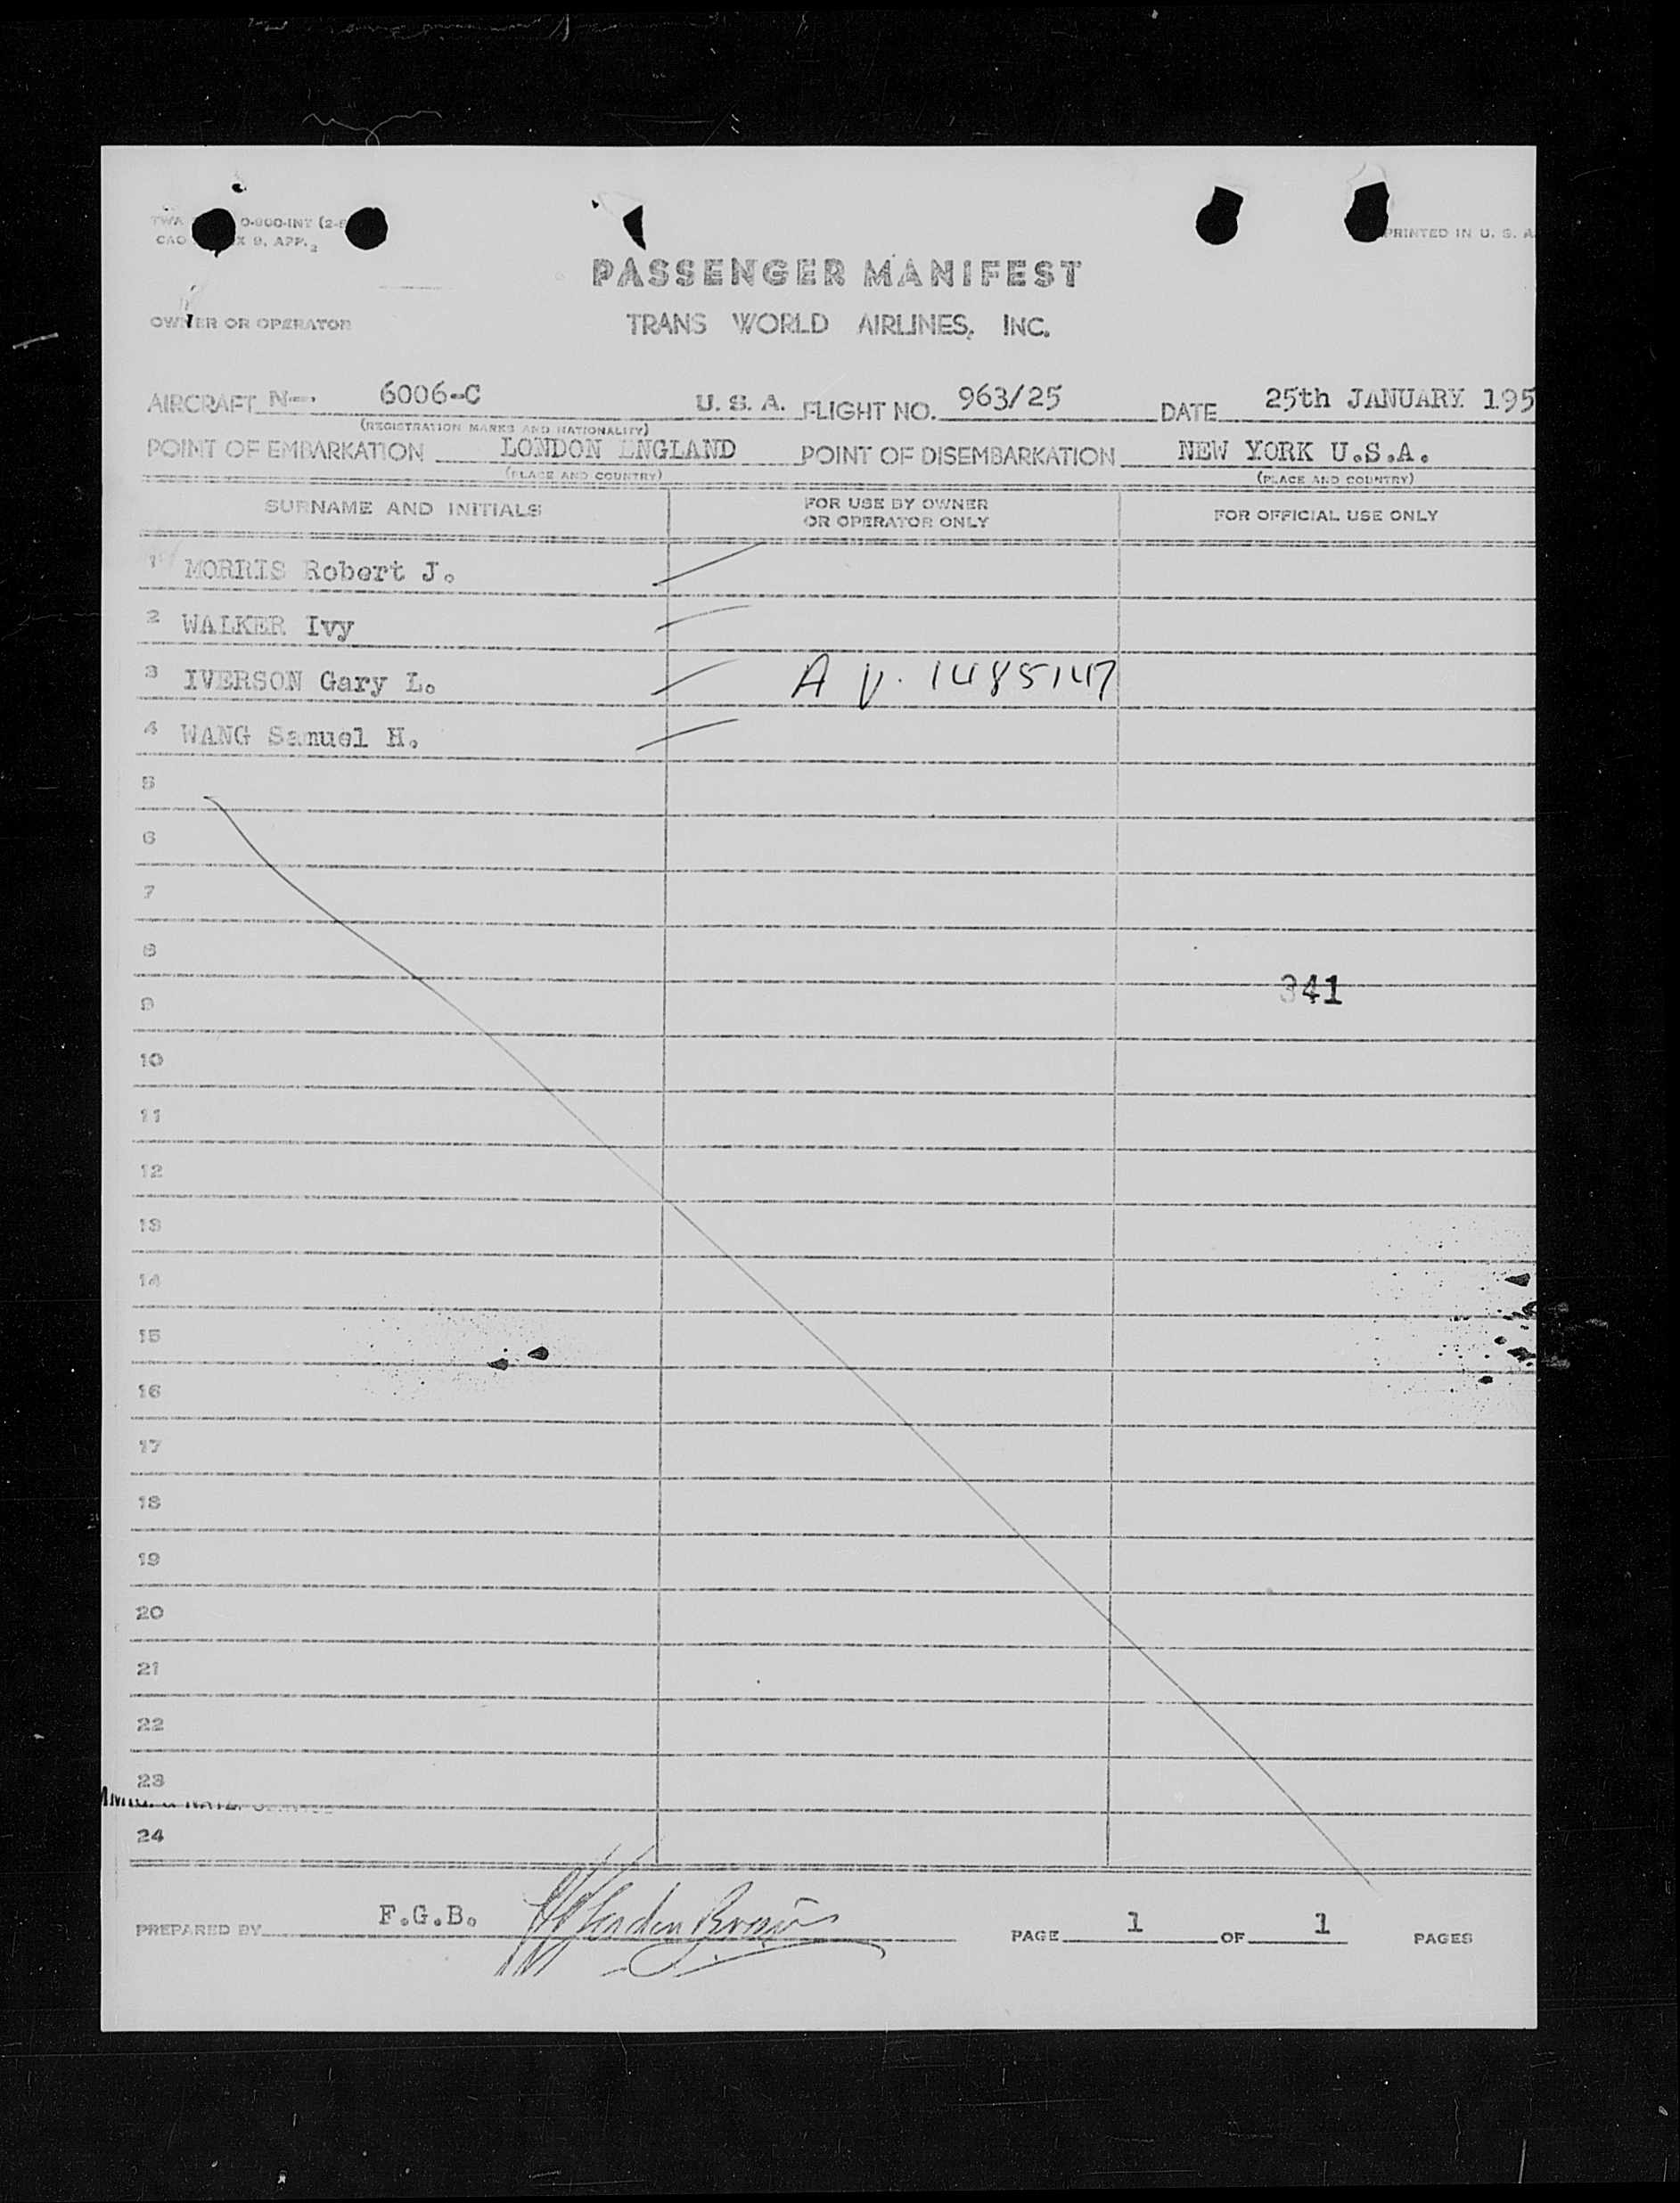 TWA O-800-INT (2-
CAO X 9, APP. 2
PRINTED IN U. S. A.
PASSENGER MANIFEST
OWNER OR OPERATOR TRANS WORLD AIRLINES, INC.
AIRCRAFT N-. 6006-C U. S. A. FLIGHT NO. 963/25 DATE 25th JANUARY 195
(REGISTRATION MARKS AND NATIONALITY)
POINT OF EMBARKATION LONDON ENGLAND POINT OF DISEMBARKATION NEW YORK U.S.A.
(PLACE AND COUNTRY) (PLACE AND COUNTRY)
SURNAME AND INITIALS FOR USE BY OWNER OR OPERATOR ONLY FOR OFFICIAL USE ONLY
1 MORRIS Robert J.
2 WALKER Ivy
3 IVERSON Gary L. A V. 1485147
4 WANG Samuel H.
5
6
7
8
341
9
10
11
12
13
14
15
16
17
18
19
20
21
22
23
24
PREPARED BY F.G.B. PAGE 1 OF 1 PAGES